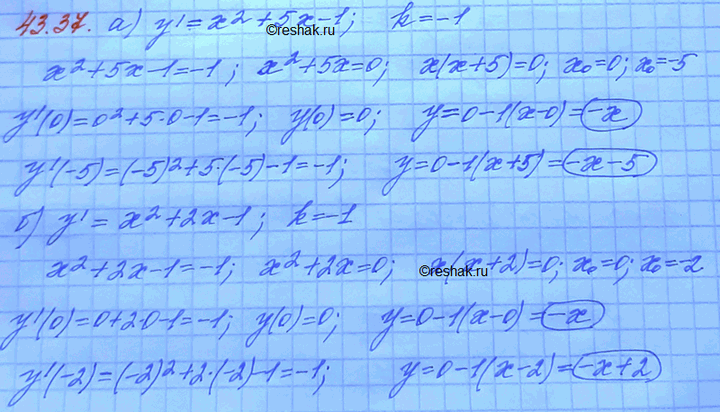 43.37. а) y' = x² + 5x - 1; k = -1
©reshak.ru
x² + 5x - 1 = -1; x² + 5x = 0; x(x + 5) = 0; x₀ = 0; x₀ = -5
y'(0) = 0² + 5·0 - 1 = -1; y(0) = 0; y = 0 - 1(x - 0) = -x
y'(-5) = (-5)² + 5·(-5) - 1 = -1; y = 0 - 1(x + 5) = -x - 5
б) y' = x² + 2x - 1; k = -1
x² + 2x - 1 = -1; x² + 2x = 0; x(x + 2) = 0; x₀ = 0; x₀ = -2
©reshak.ru
y'(0) = 0 + 2·0 - 1 = -1; y(0) = 0; y = 0 - 1(x - 0) = -x
y'(-2) = (-2)² + 2·(-2) - 1 = -1; y = 0 - 1(x - 2) = -x + 2